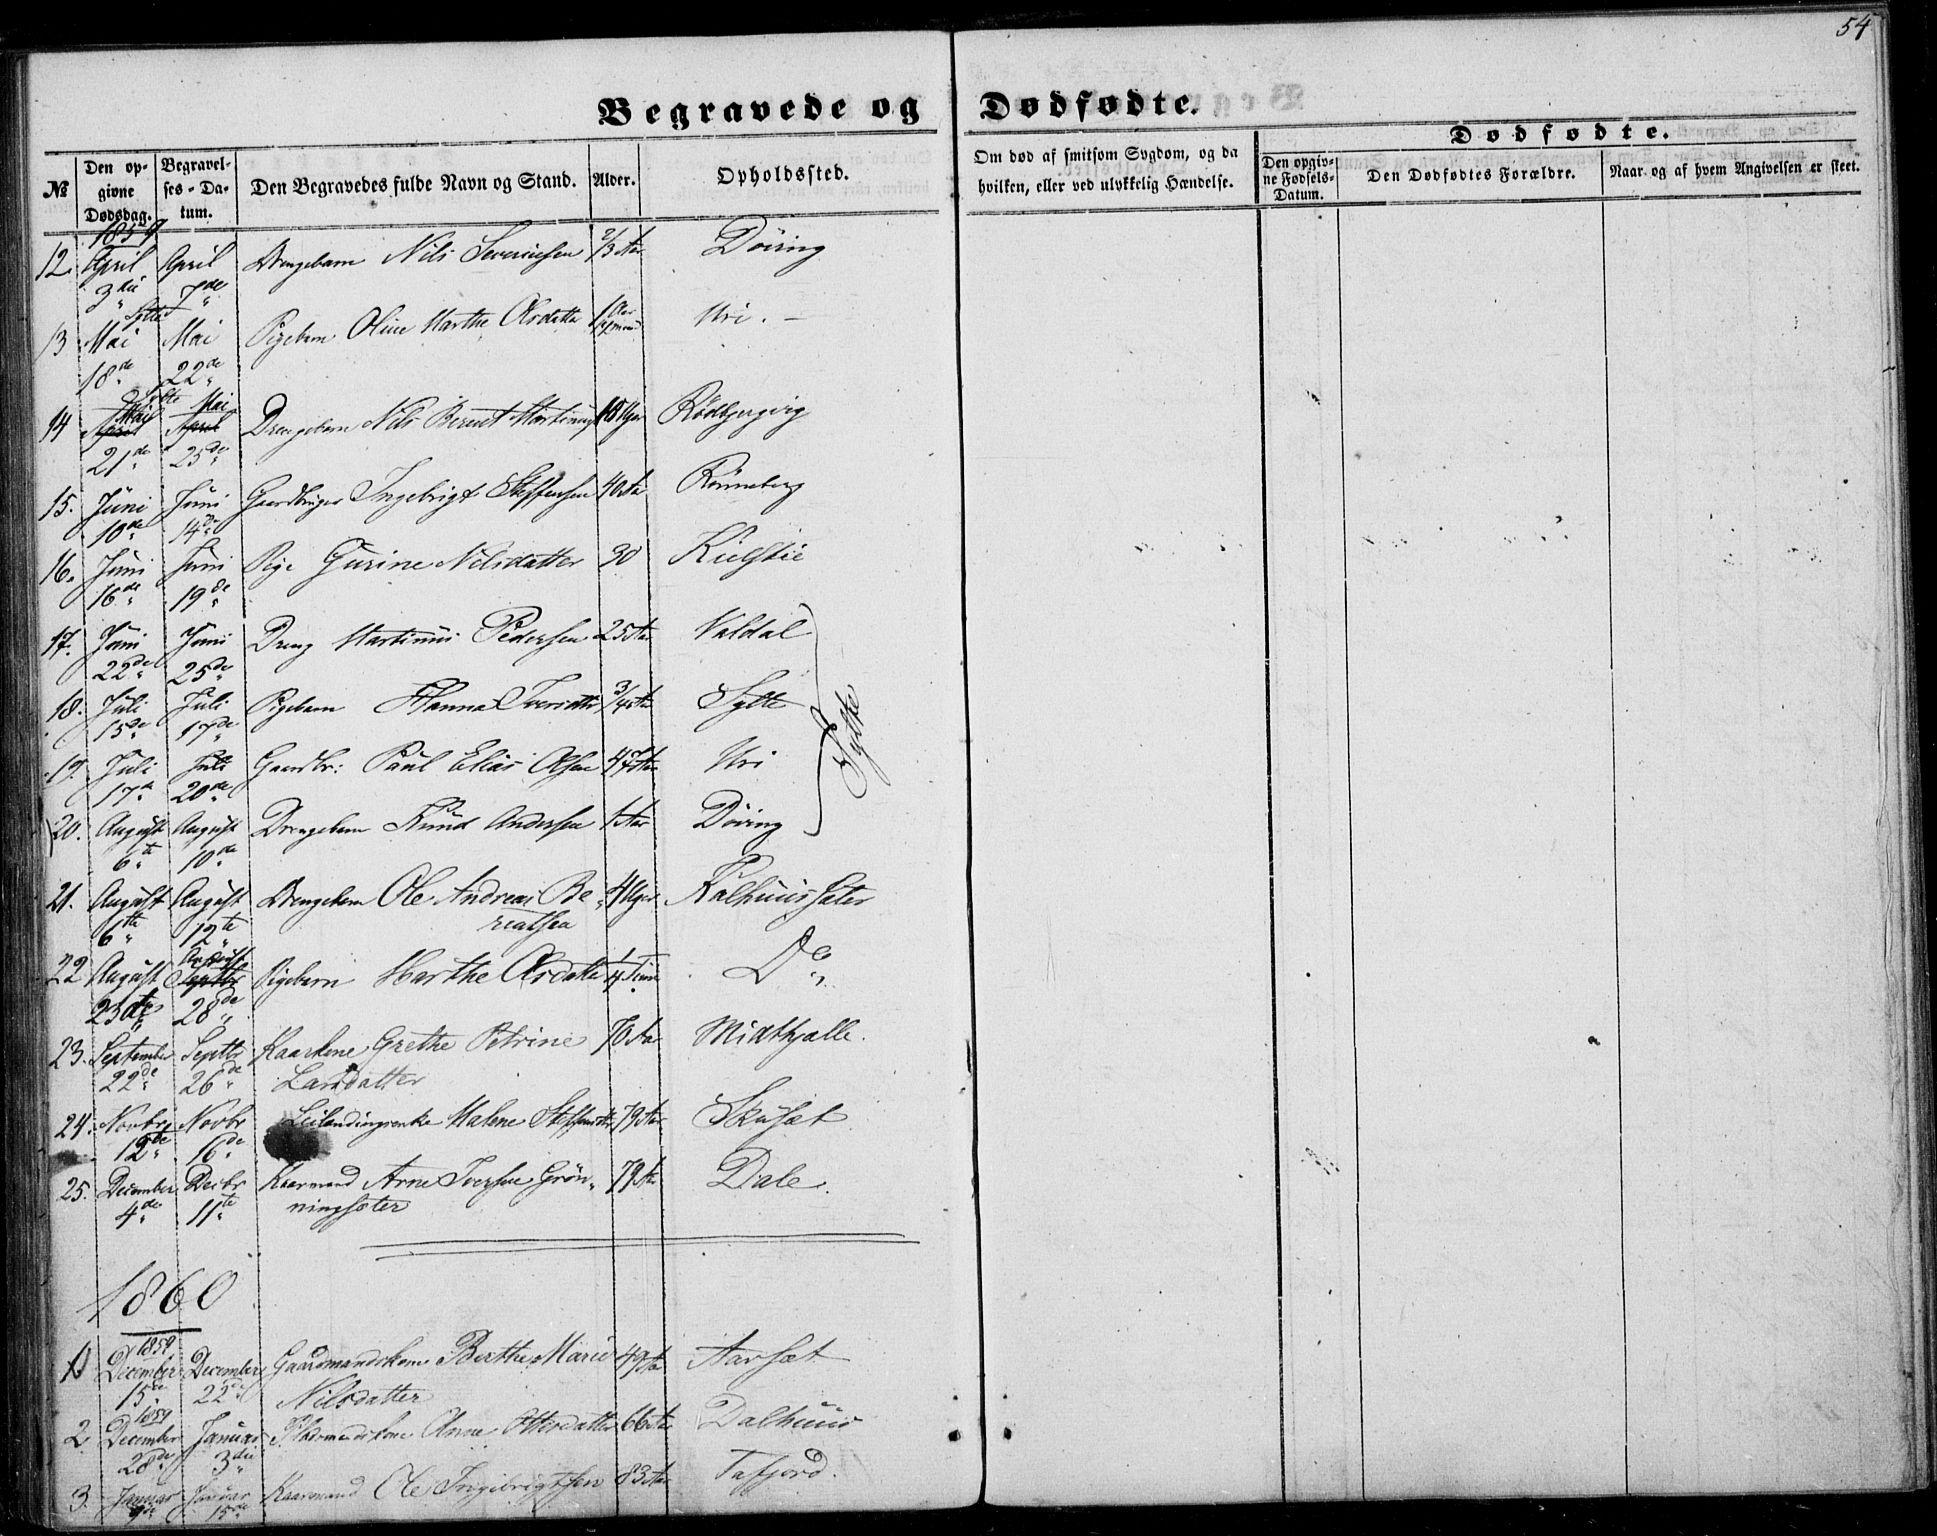 54
Begravede og Dødfødte.
№ Den opgivne Dødsdag. Begravelses-Datum. Den Begravedes fulde Navn og Stand. Alder. Opholdssted. Om død af smitsom Sygdom, og da hvilken, eller ved ulykkelig Hændelse. Dødfødte. Den opgivne Fødsels-Datum. Den Dødfødtes Forældre. Naar og af hvem Angivelsen er skeet.
1859
12. April April Drengebarn Nils Severinsen 2/3 Aar Döving
3die 7de
Sylte
13 Mai Mai Pigebarn Oline Marthe Olsdatter 1 Aar Uri.
18de 22de
Sylte
14 April Mai April Mai Drengebarn Nils Berent Martinus 18 Uger Rödbjergvig
21de 25de
15. Juni Juni Gaardbruger Ingebrigt Steffensen 40 Aar Rönneberg
10de 14de
16. Juni Juni Pige Gurine Nilsdatter 30 Kielstie
16de 19de
17. Juni Juni Dreng Martinus Pedersen 25 Aar Valdal
22de 25de
18. Juli Juli Pigebarn Hanna Iversdtr 3/4 Aar Sylte
15de 17de
Sylte
19. Juli Juli Gaardbr: Paul Elias Olsen 47 Aar Uri
17de 20de
20. August August Drengebarn Knud Andersen 1 Aar Döving
6te 10de
21. August August Drengebarn Ole Andreas Be- 4 Uger Kalhuussæter
6te 12te reatsen
22 August Septbr August Pigebarn Marthe Olsdatter 1/4 Time Do
23de 28de
23. September Septbr Kaarkone Grethe Petrine 70 Aar Midthjælle.
22de 26de Larsdatter
24. Novbr Novbr Leilændingenke Malene Steffensdtr 79 Aar Skuset
12te 16de
25. December Decbr Kaarmand Arne Iversen Grön- 79 Aar Dale.
4de 11te ningsæter
1860
1859
1 December December Gaardmandskone Berthe Marie 49 Aar Aarset
15de 22de Nilsdatter
1859
2. December Januar Pladsmandskone Anne Ottersdatter 66 Aar Dalhuus
28de 3die
3. Januar Januar Kaarmand Ole Ingebrigtsen 83 Aar Tafjord.
9de 15de